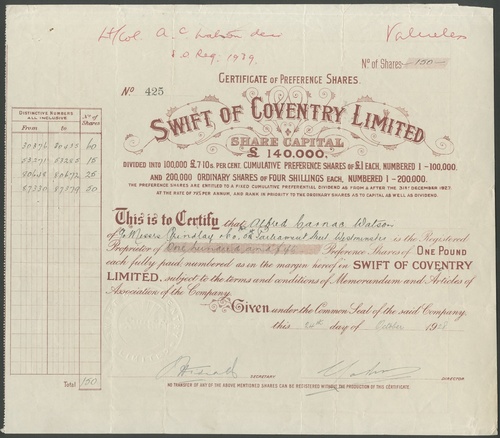 Lt/Col. A. C. Watson
Reg. 1939.
Valueless
No of Shares 150
CERTIFICATE OF PREFERENCE SHARES.
No 425
SWIFT OF COVENTRY LIMITED
SHARE CAPITAL
£140,000.
DIVIDED INTO 100,000 £7.10s. PER CENT. CUMULATIVE PREFERENCE SHARES OF £1 EACH, NUMBERED 1-100,000.
AND 200,000 ORDINARY SHARES OF FOUR SHILLINGS EACH, NUMBERED 1-200,000.
THE PREFERENCE SHARES ARE ENTITLED TO A FIXED CUMULATIVE PREFERENTIAL DIVIDEND AS FROM & AFTER THE 31ST DECEMBER 1927.
AT THE RATE OF 7½ PER ANNUM, AND RANK IN PRIORITY TO THE ORDINARY SHARES AS TO CAPITAL AS WELL AS DIVIDEND.
DISTINCTIVE NUMBERS
ALL INCLUSIVE
No of
Shares
From to
60
15
25
50
Total 150
This is to Certify that Alfred Carnac Watson
of Messrs Grindlay & Co. 54 Parliament Street Westminster is the Registered
Proprietor of One hundred and fifty Preference Shares of ONE POUND
each fully paid numbered as in the margin hereof in SWIFT OF COVENTRY
LIMITED, subject to the terms and conditions of Memorandum and Articles of
Association of the Company.
Given under the Common Seal of the said Company
this day of October 19
SECRETARY
DIRECTOR
NO TRANSFER OF ANY OF THE ABOVE MENTIONED SHARES CAN BE REGISTERED WITHOUT THE PRODUCTION OF THIS CERTIFICATE.